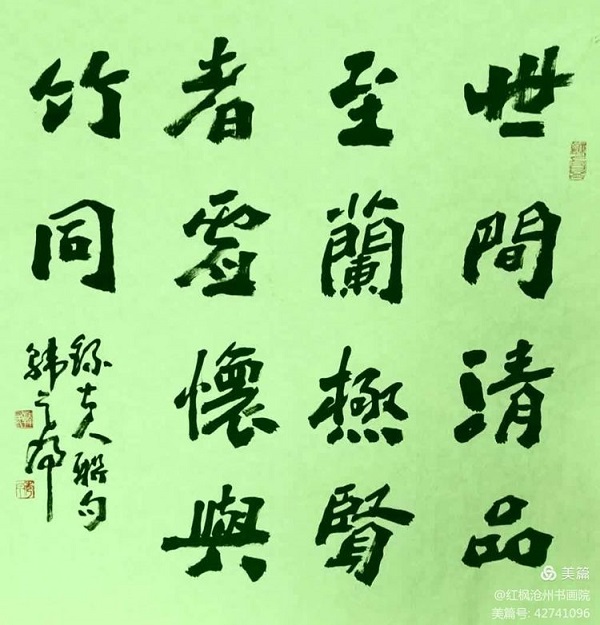 世間清品
至蘭極賢
者虛懷與
竹同
錄古人聯句
韩之
美篇
@红枫沧州书画院
美篇号: 42741096